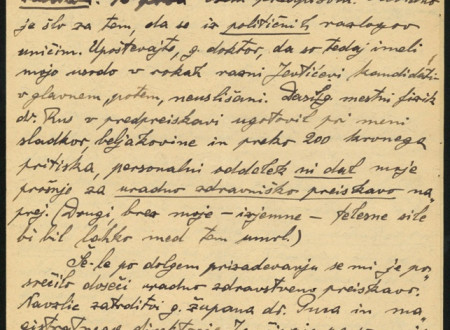 je šlo za tem, da se iz političnih razlogov
uničim. Upoštevajte, g. doktor, da so tedaj imeli
mojo usodo v rokah razni Jevtićevi kandidati
v glavnem, potem, neuslišani. Dasi g. mestni fizik
dr. Rus v predpreiskavi ugotovil pri meni
sladkor, beljakovine in preko 200 krvnega
pritiska, personalni oddelek ni dal moje
prošnje za uradno zdravniško preiskavo na-
prej. (Drugi brez moje – izjemne – telesne sile
bi bil lahko med tem umrl.)
Še-le po dolgem prizadevanju se mi je po-
srečilo doseči uradno zdravstveno preiskavo.
Navzlic zatrditvi g. župana dr. Puca in ma-